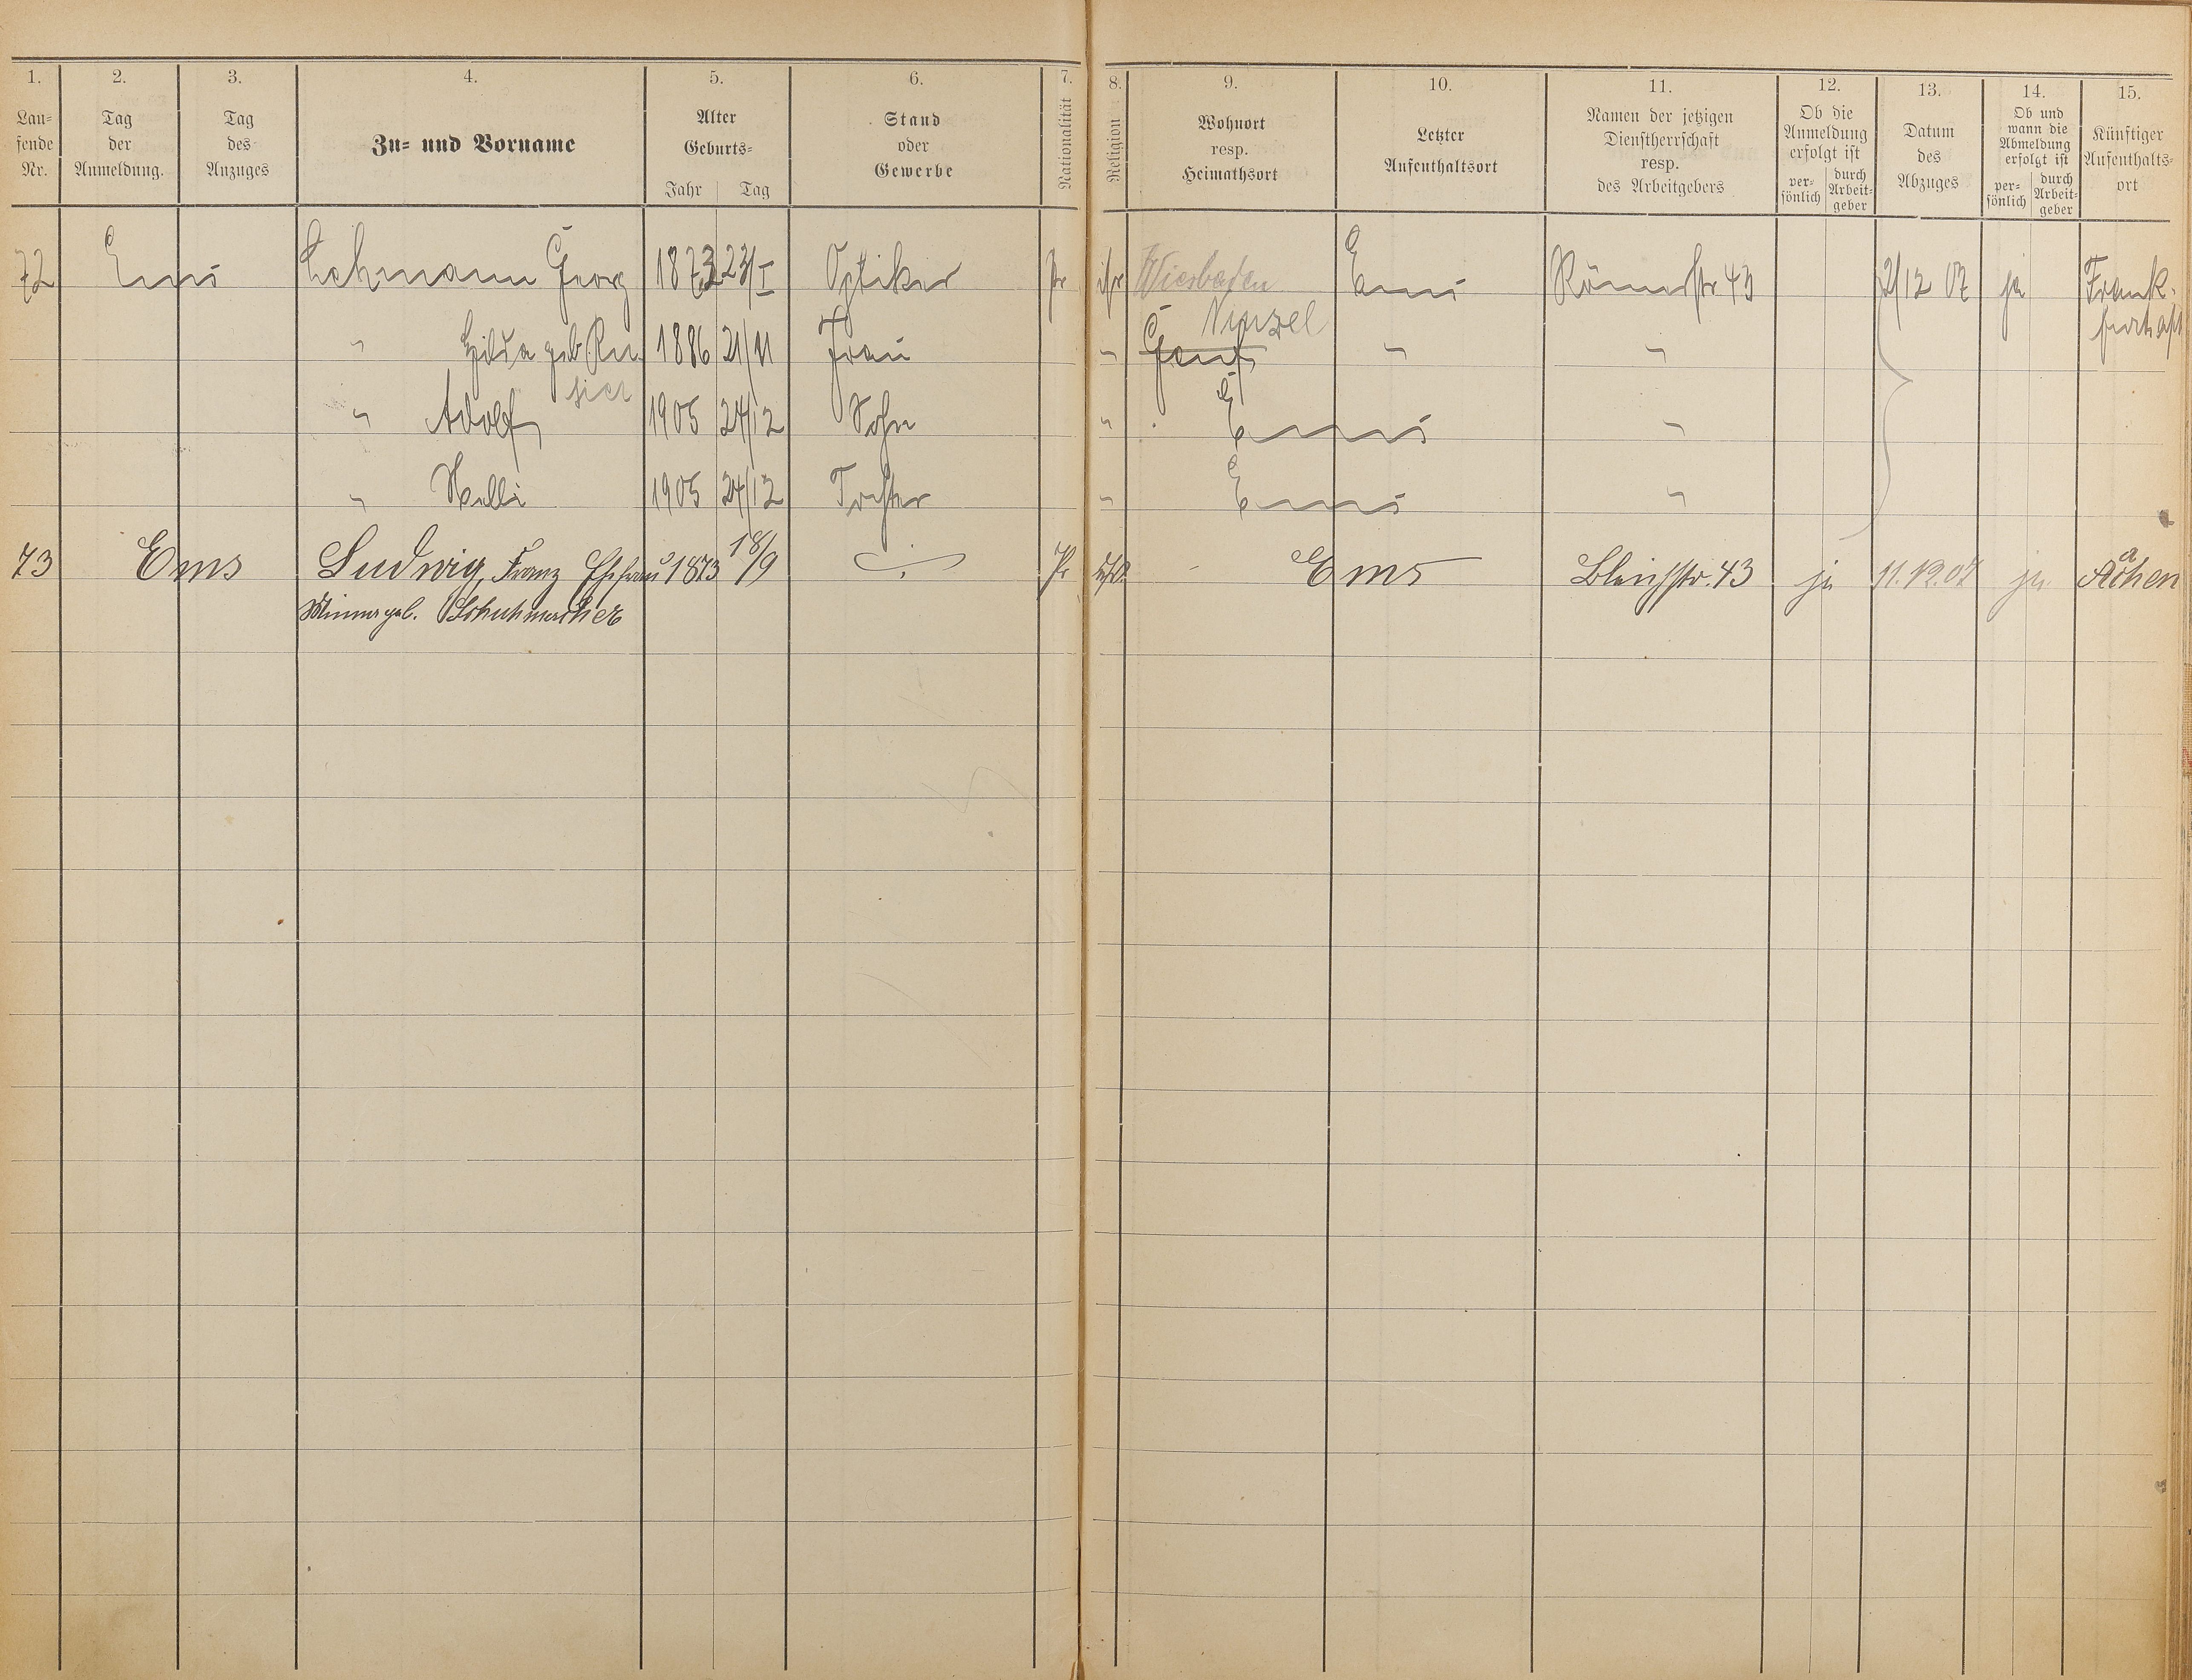 1. 2. 3. 4. 5. 6. 7. 8. 9. 10. 11. 12. 13. 14. 15.
Lau=
fende
Nr.
Tag
der
Anmeldung.
Tag
des
Anzuges
Zu= und Vorname
Alter
Geburts=
Jahr Tag
Stand
oder
Gewerbe
Nationalität
Religion
Wohnort
resp.
Heimathsort
Letzter
Aufenthaltsort
Namen der jetzigen
Dienstherrschaft
resp.
des Arbeitgebers
Ob die
Anmeldung
erfolgt ist
per=
sönlich
durch
Arbeit=
geber
Datum
des
Abzuges
Ob und
wann die
Abmeldung
erfolgt ist
per=
sönlich
durch
Arbeit=
geber
Künftiger
Aufenthalts=
ort
72 Ems Lehmann Georg 1873 23/I Optiker Pr isr Wiesbaden Ems Römerstr 43 2/12 07 ja Frank-
furt a/M
" Hilda geb. Ru 1886 21/11 Frau " Genf " "
sier
" Adolf 1905 24/12 Sohn " Ems "
" Nelli 1905 24/12 Tochter " Ems "
73 Ems Ludwig, Franz Ehefrau 1873 18/9 Pr Ems Bleichstr. 43 ja 11.12.07 ja Aachen
Minna geb. Schuhmacher